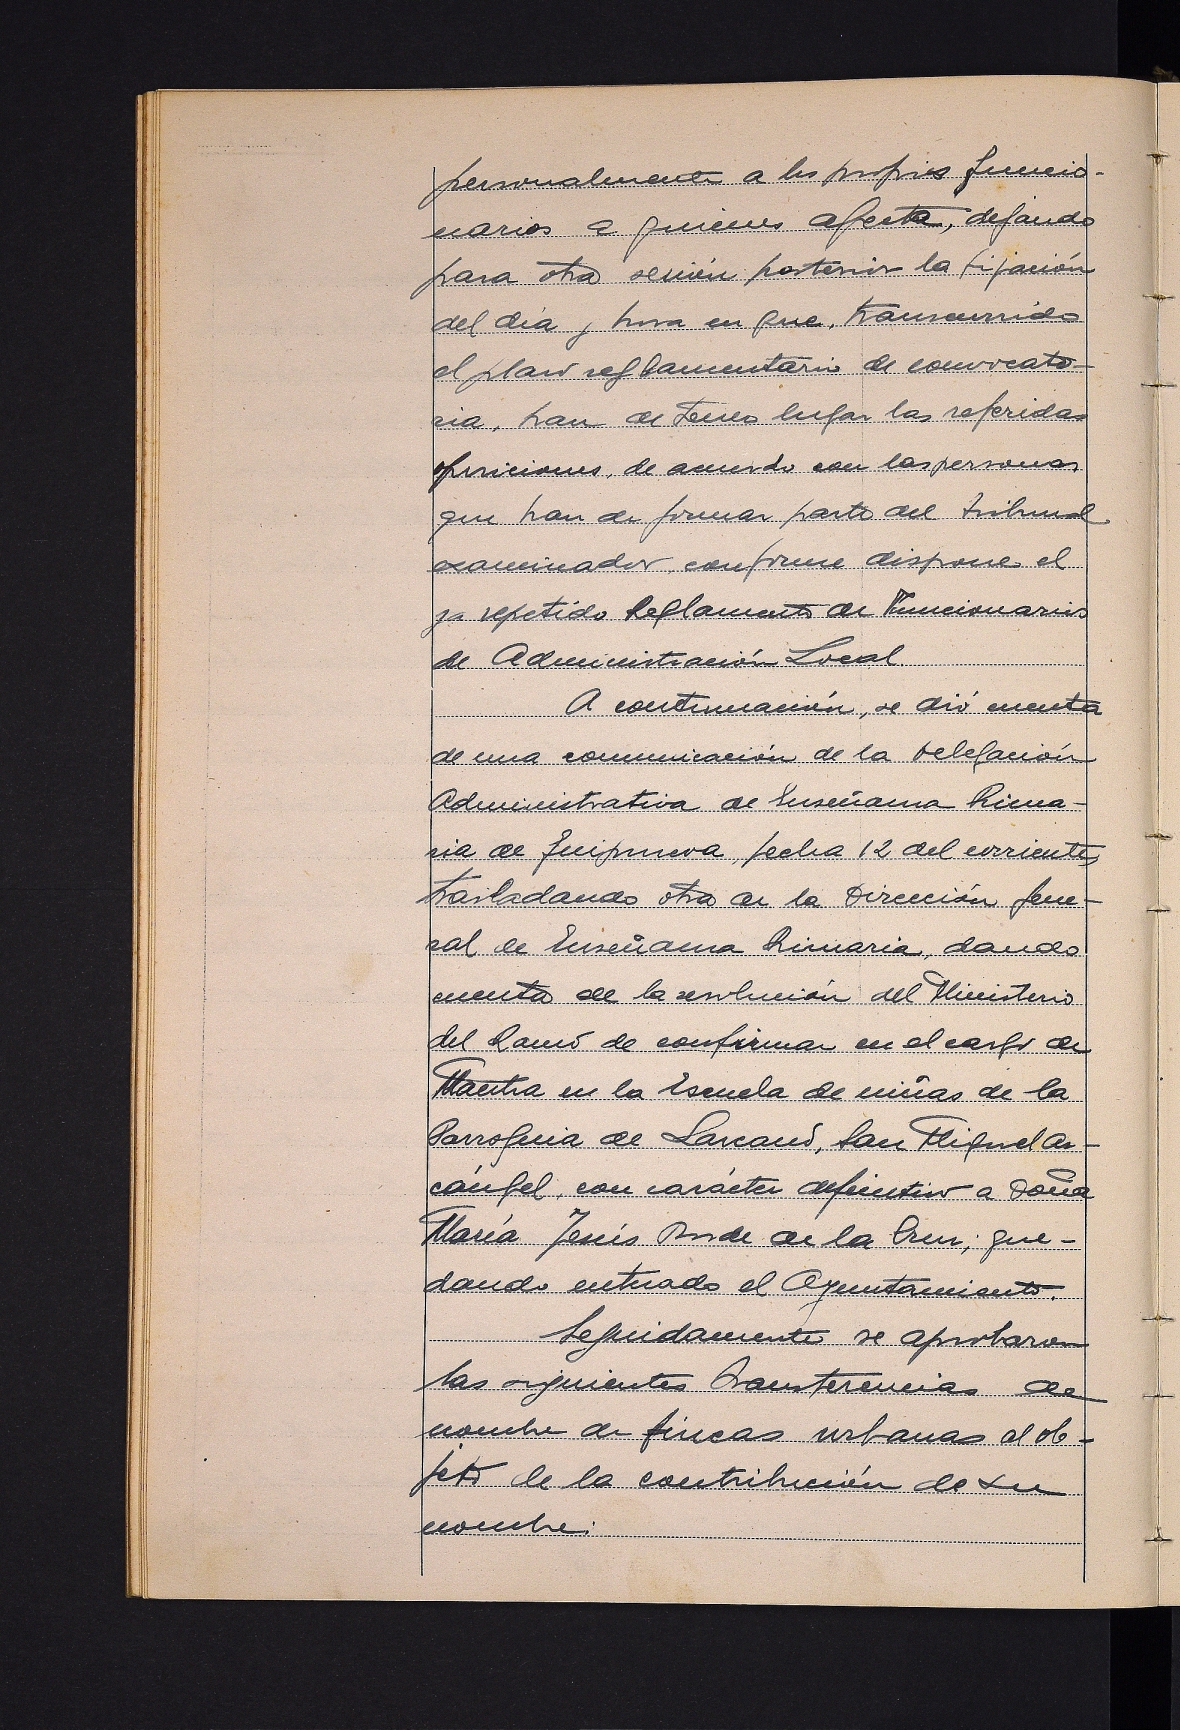 personalmente a los propios funcio-
narios a quienes afecta, dejando
para otra sesión posterior la fijación
del día y hora en que, transcurrido
el plazo reglamentario de convocato-
ria, han de tener lugar las referidas
oposiciones, de acuerdo con las personas
que han de formar parte del Tribunal
examinador, conforme dispone el
ya repetido Reglamento de Funcionarios
de Administración Local.
A continuación, se dió cuenta
de una comunicación de la Delegación
Administrativa de Enseñanza Prima-
ria de Guipuzcoa, fecha 12 del corriente,
trasladando otra de la Dirección Gene-
ral de Enseñanza Primaria, dando
cuenta de la resolución del Ministerio
del Ramo de confirmar en el cargo de
Maestra en la Escuela de niñas de la
Parroquia de Lazcano, San Miguel Ar-
cángel, con carácter definitivo a Doña
María Jesús de la Cruz; que-
dando enterado el Ayuntamiento.
Seguidamente se aprobaron
las siguientes transferencias de
nombre de fincas urbanas al ob-
jeto de la contribución de su
nombre: